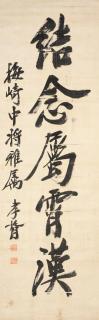 結念屬霄漢
梅崎中将雅属 孝胥